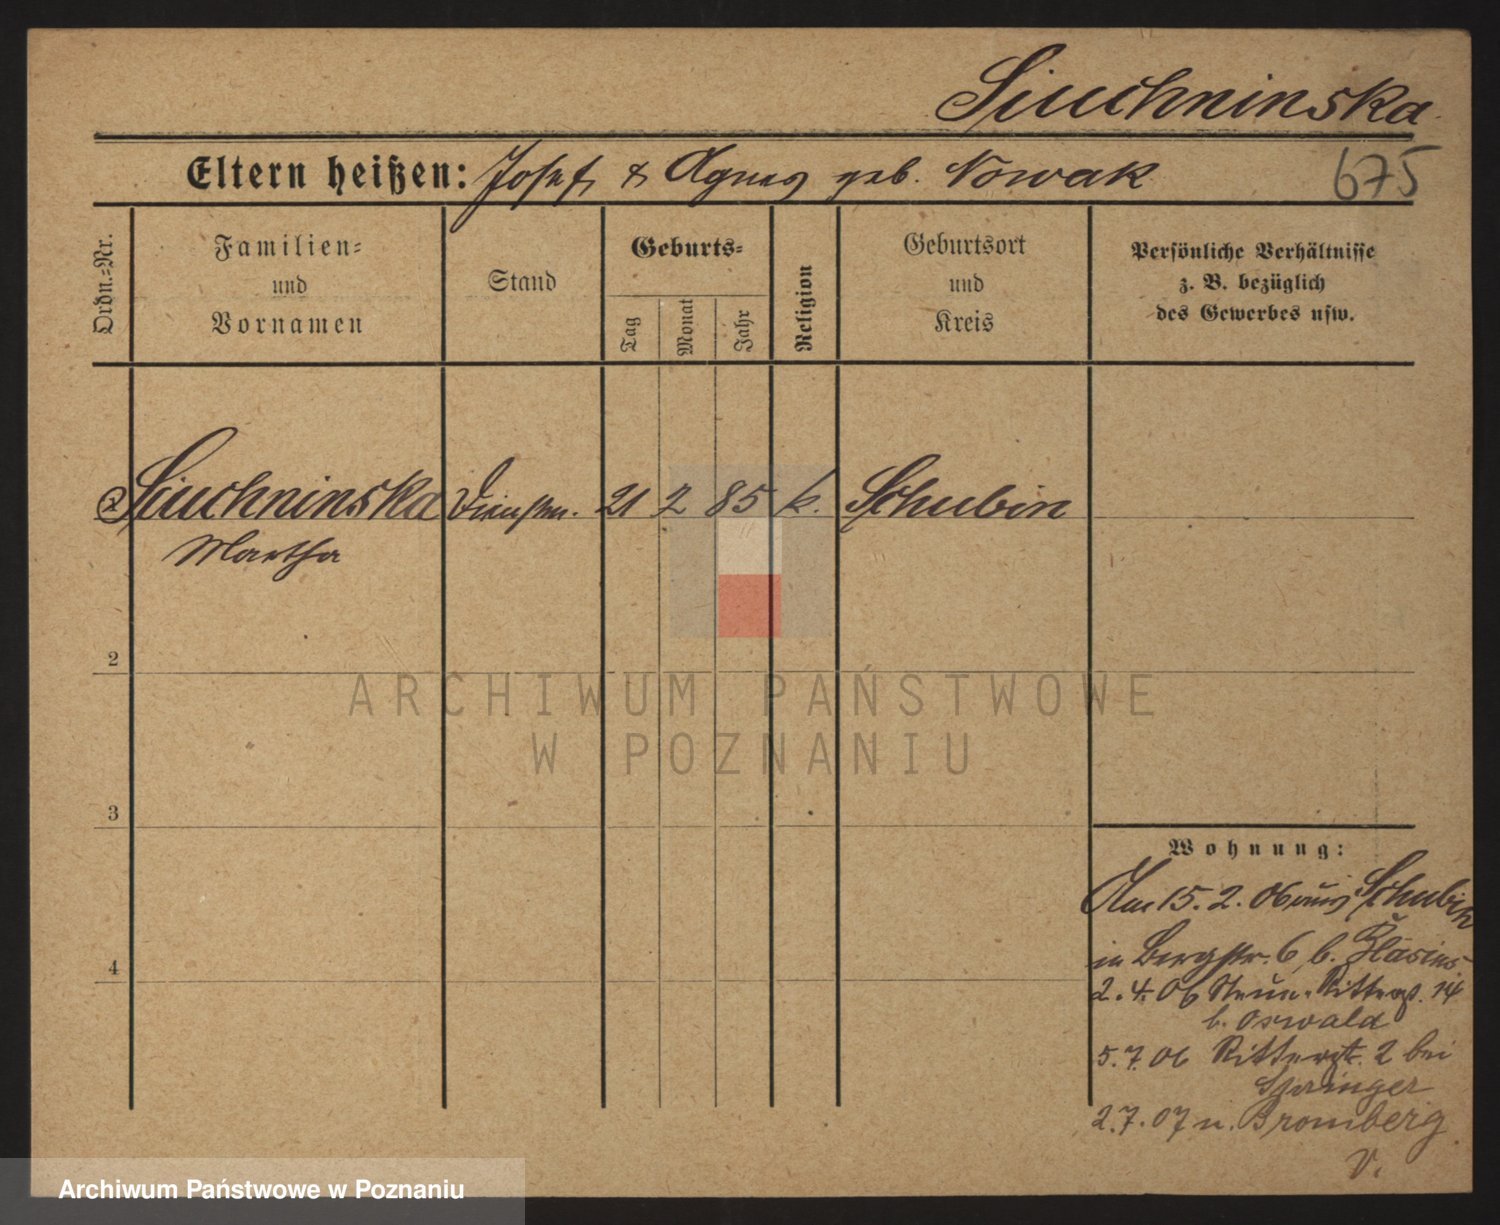 Siuchninska
Eltern heißen: Josef & Agnes geb. Nowak
675
Ordn.-Nr.
Familien-
und
Vornamen
Stand
Geburts-
Tag
Monat
Jahr
Religion
Geburtsort
und
Kreis
Persönliche Verhältnisse
z. B. bezüglich
des Gewerbes usw.
Siuchninska Dienstm. 21 2 85 k. Schubin
Martha
2
ARCHIWUM PAŃSTWOWE
W POZNANIU
3
Wohnung:
Am 15. 2. 06 aus Schubin
in Bergstr. 6, b.
4
2. 4. 06 Ritterst. 14
b. Oswald
5. 7. 06 Ritterst. 2 bei
Springer
2. 7. 07 n. Bromberg
V.
Archiwum Państwowe w Poznaniu